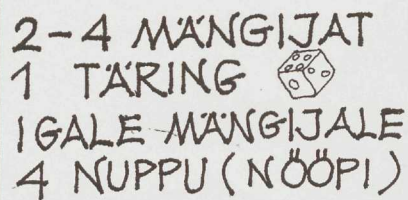 2-4 MÄNGIJAT
1 TÄRING
IGALE MÄNGIJALE
4 NUPPU (NÖÖPI)